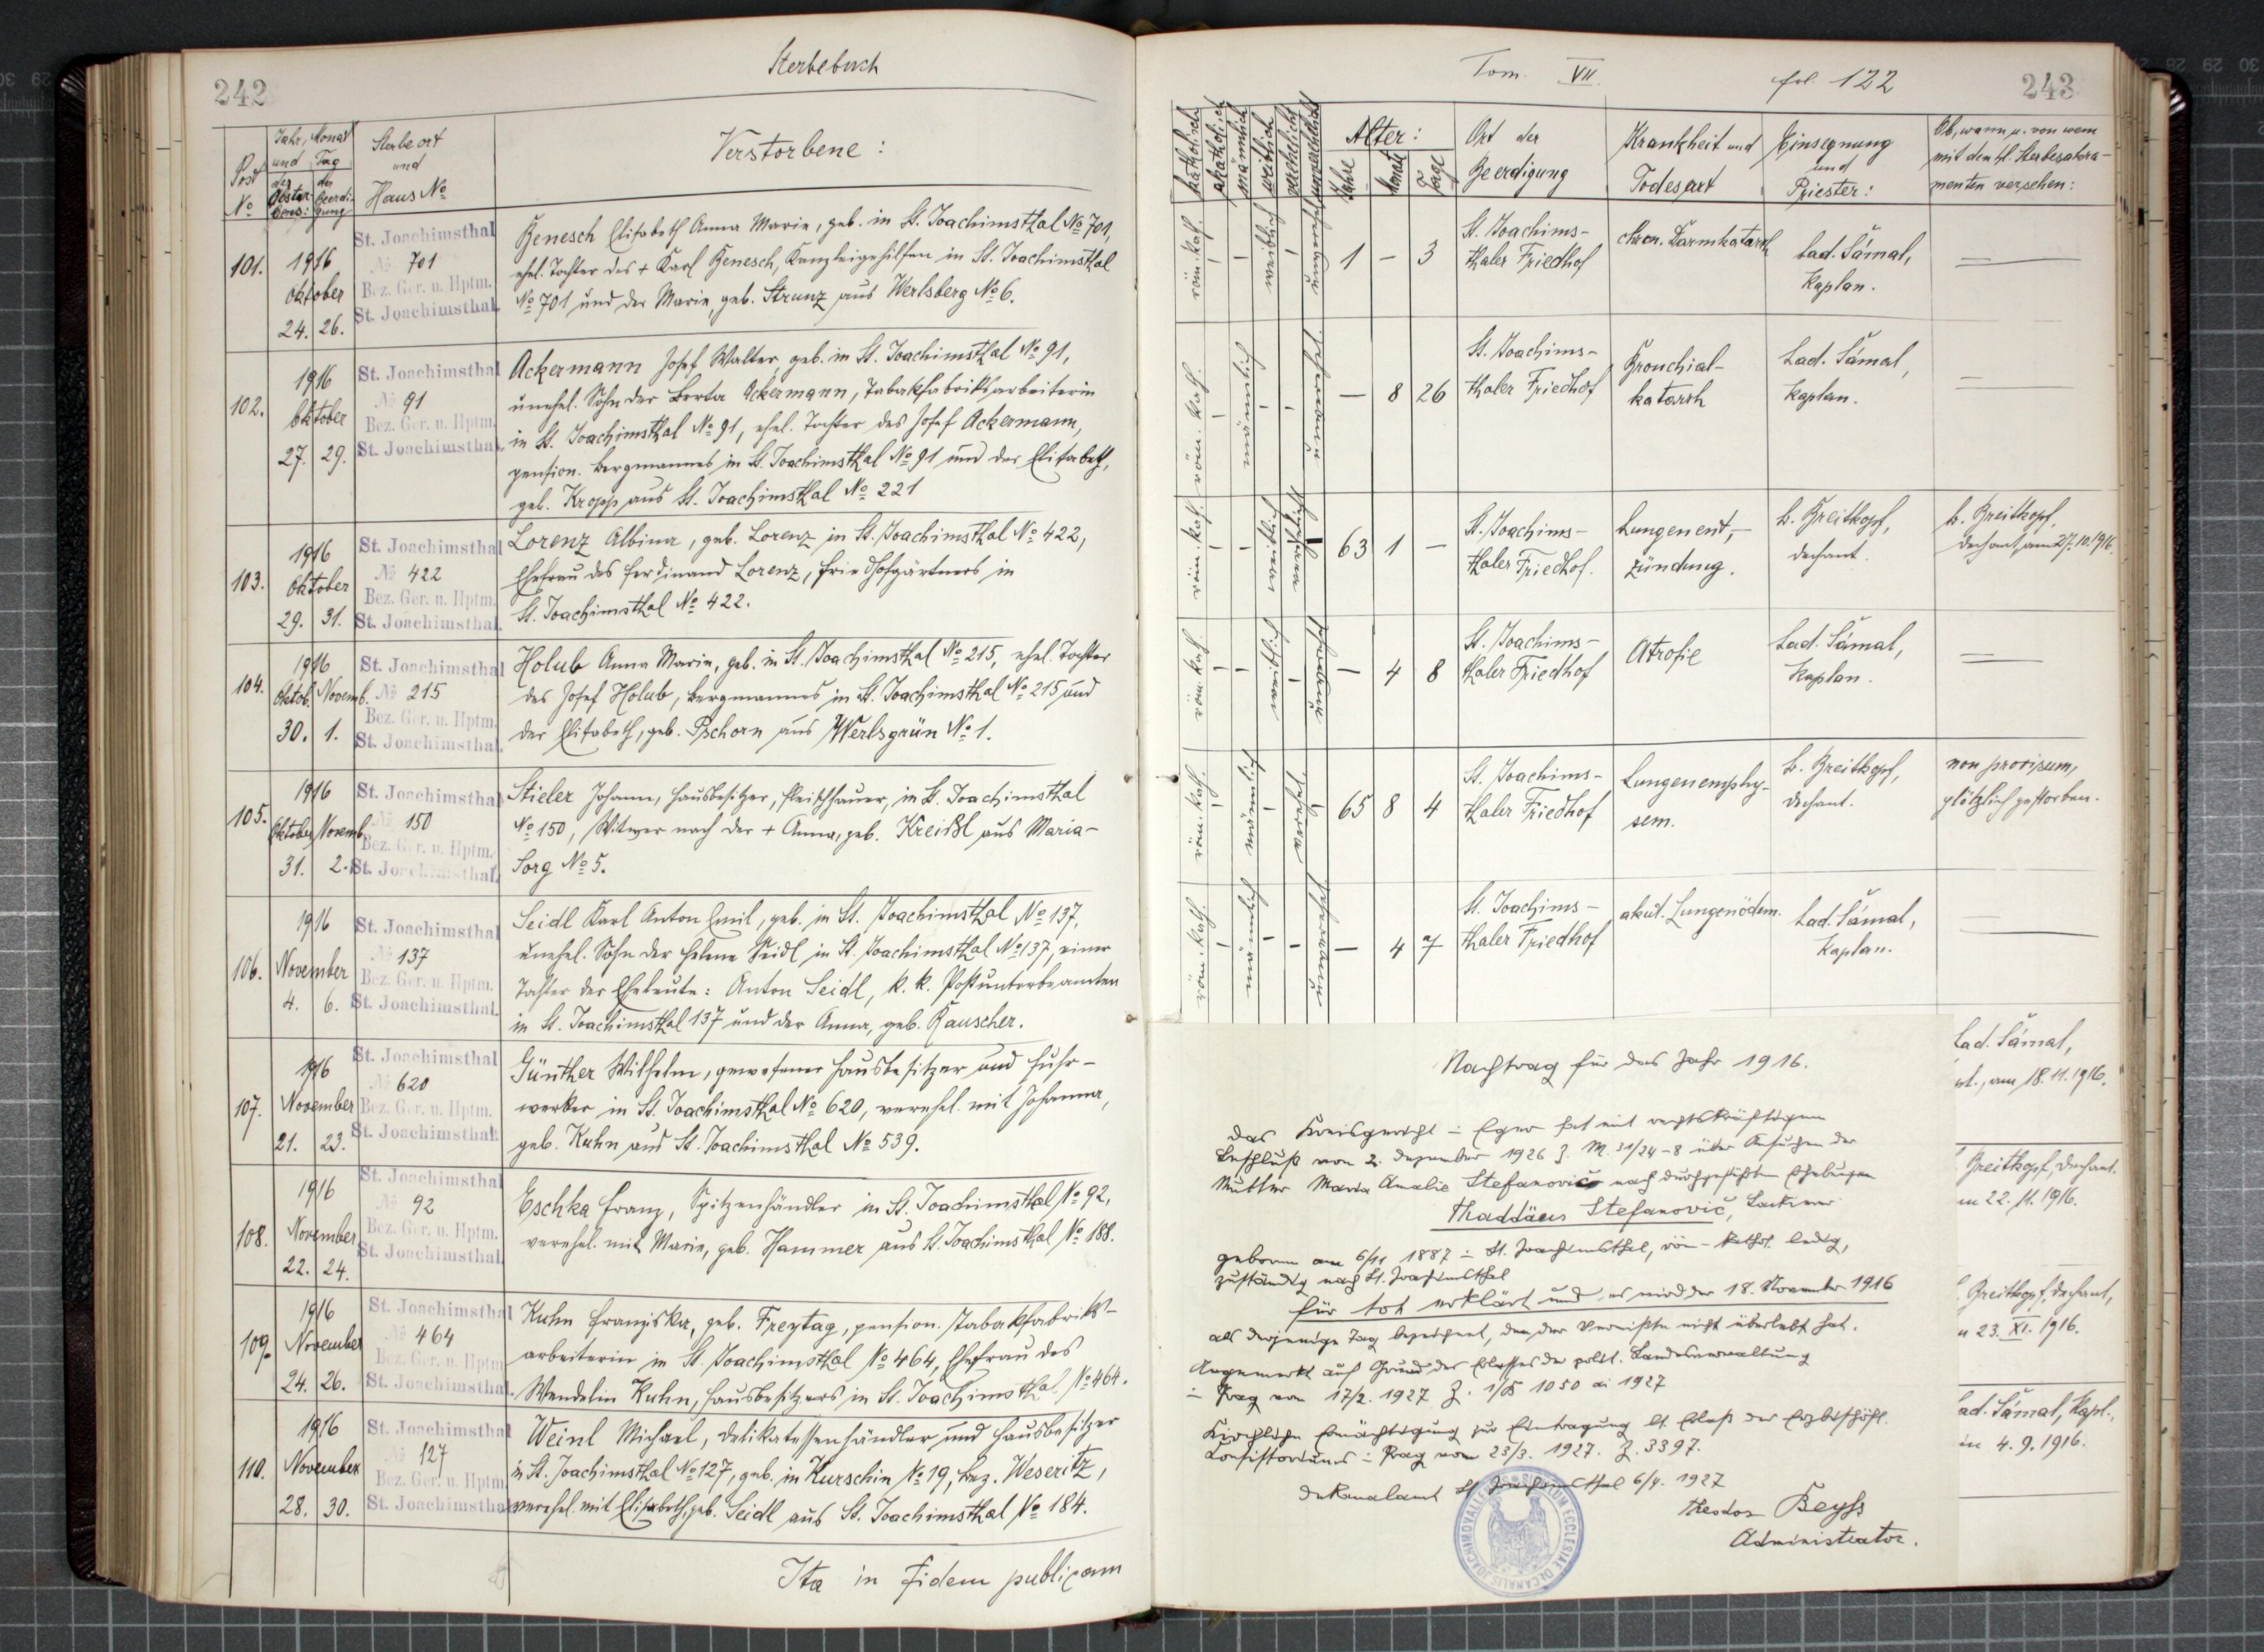 242
Sterbebuch
Post
No
Jahr, Monat
und Tag
des Abster-
bens:
der Beerdi-
gung
Sterbeort
und
Haus No
Verstorbene:
101.
1916
Oktober
24. 26.
St. Joachimsthal
No 701
Bez. Ger. u. Hptm.
St. Joachimsthal.
Benesch Elisabeth Anna Marie, geb. in St. Joachimsthal No 701,
ehel. Tochter des + Karl Benesch, Kanzleigehilfen in St. Joachimsthal
No 701 und der Marie, geb. Strunz aus Werlsberg No 6.
102.
1916
Oktober
27. 29.
St. Joachimsthal
No 91
Bez. Ger. u. Hptm.
St. Joachimsthal.
Ackermann Josef Walter, geb. in St. Joachimsthal No 91,
unehel. Sohn der Berta Ackermann, Tabakfabriksarbeiterin
in St. Joachimsthal No 91, ehel. Tochter des Josef Ackermann,
pension. Bergmannes in St. Joachimsthal No 91 und der Elisabeth,
geb. Kropp aus St. Joachimsthal No 221
103.
1916
Oktober
29. 31.
St. Joachimsthal
No 422
Bez. Ger. u. Hptm.
St. Joachimsthal.
Lorenz Albina, geb. Lorenz in St. Joachimsthal No 422,
Ehefrau des Ferdinand Lorenz, Friedhofgärtners in
St. Joachimsthal No 422.
104.
1916
Oktob. Novemb.
30. 1.
St. Joachimsthal
No 215
Bez. Ger. u. Hptm.
St. Joachimsthal.
Holub Anna Marie, geb. in St. Joachimsthal No 215, ehel. Tochter
des Josef Holub, Bergmannes in St. Joachimsthal No 215 und
der Elisabeth, geb. Pschorn aus Werlsgrün No 1.
105.
1916
Oktober Novemb.
31. 2.
St. Joachimsthal
No 150
Bez. Ger. u. Hptm.
St. Joachimsthal.
Stieler Johann, Hausbesitzer, Fleischhauer, in St. Joachimsthal
No 150, Witwer nach der + Anna, geb. Kreißl aus Maria-
Sorg No 5.
106.
1916
November
4. 6.
St. Joachimsthal
No 137
Bez. Ger. u. Hptm.
St. Joachimsthal.
Seidl Karl Anton Emil, geb. in St. Joachimsthal No 137,
unehel. Sohn der Helene Seidl in St. Joachimsthal No 137, einer
Tochter der Eheleute: Anton Seidl, k. k. Postunterbeamten
in St. Joachimsthal 137 und der Anna, geb. Rauscher.
107.
1916
November
21. 23.
St. Joachimsthal
No 620
Bez. Ger. u. Hptm.
St. Joachimsthal.
Günther Wilhelm, gewesener Hausbesitzer und Fuhr-
werker in St. Joachimsthal No 620, verehel. mit Johanna,
geb. Kuhn aus St. Joachimsthal No 539.
108.
1916
November
22. 24.
St. Joachimsthal
No 92
Bez. Ger. u. Hptm.
St. Joachimsthal.
Eschka Franz, Spitzenhändler in St. Joachimsthal No 92,
verehel. mit Marie, geb. Hammer aus St. Joachimsthal No 188.
109.
1916
November
24. 26.
St. Joachimsthal
No 464
Bez. Ger. u. Hptm.
St. Joachimsthal.
Kuhn Franziska, geb. Freytag, pension. Tabakfabriks-
arbeiterin in St. Joachimsthal No 464, Ehefrau des
Wendelin Kuhn, Hausbesitzers in St. Joachimsthal No 464.
110.
1916
November
28. 30.
St. Joachimsthal
No 127
Bez. Ger. u. Hptm.
St. Joachimsthal
Weinl Michael, Delikatessenhändler und Hausbesitzer
in St. Joachimsthal No 127, geb. in Kurschin No 19, Bez. Weseritz,
verehel. mit Elisabeth, geb. Seidl aus St. Joachimsthal No 184.
Ita in fidem publicam
Tom. VII.
fol. 122
243
katholisch
akatholisch
männlich
weiblich
verehelicht
unverehelicht
Alter:
Jahre
Monate
Tage
Ort der
Beerdigung
Krankheit und
Todesart
Einsegnung
und
Priester:
Ob, wann u. von wem
mit den hl. Sterbesakra-
menten versehen:
röm. kath. - - weiblich - unverehel. 1 - 3
St. Joachims-
thaler Friedhof
chron. Darmkatarrh
Lad. Šámal,
Kaplan.
röm. kath. - männlich - - unverehel. - 8 26
St. Joachims-
thaler Friedhof
Bronchial-
katarrh
Lad. Šámal,
Kaplan.
röm. kath. - - weiblich verehelicht - 63 1 -
St. Joachims-
thaler Friedhof.
Lungenent-
zündung.
L. Breitkopf,
Dechant.
L. Breitkopf,
Dechant, am 27.10.1916.
röm. kath. - - weiblich - unverehel. - 4 8
St. Joachims-
thaler Friedhof
Atrofie
Lad. Šámal,
Kaplan.
röm. kath. - männlich - verehel. - 65 8 4
St. Joachims-
thaler Friedhof
Lungenemphy-
sem.
L. Breitkopf,
Dechant.
non provisum,
plötzlich gestorben.
röm. kath. - männlich - - unverehel. - 4 7
St. Joachims-
thaler Friedhof
akut. Lungenödem.
Lad. Šámal,
Kaplan.
Lad. Šámal,
pl., am 18.11.1916.
Breitkopf, Dechant.
m 22.11.1916.
Breitkopf, Dechant,
n 23. XI. 1916.
ad. Šámal, Kapl.,
in 4.9.1916.
Nachtrag für das Jahr 1916.
Das Kreisgericht in Eger hat mit rechtskräftigem
Beschluß vom 2. Dezember 1926 Z. M. 31/24-8 über Ansuchen der
Mutter Maria Amalie Stefanovič nach durchgeführten Erhebungen
Thaddäus Stefanovič,
geboren am 6/11 1887 in St. Joachimsthal, röm-kathol. ledig,
zuständig nach St. Joachimsthal
für tot erklärt und es wird der 18. November 1916
als derjenige Tag bezeichnet, den der Vermißte nicht überlebt hat.
Angemerkt auf Grund des Erlasses der polit. Landesverwaltung
in Prag vom 17/2. 1927 Z. 1050 ai 1927
Kirchliche Ermächtigung zur Eintragung lt. Erlaß des Erzbischöfl.
Konsistoriums in Prag vom 23/3. 1927. Z. 3397.
Dekanalamt St. Joachimsthal 6/4. 1927
Theodor Beyss
Administrator.
SIGILLUM ECCLESIAE DECANALIS JOACHIMOVALLENSIS